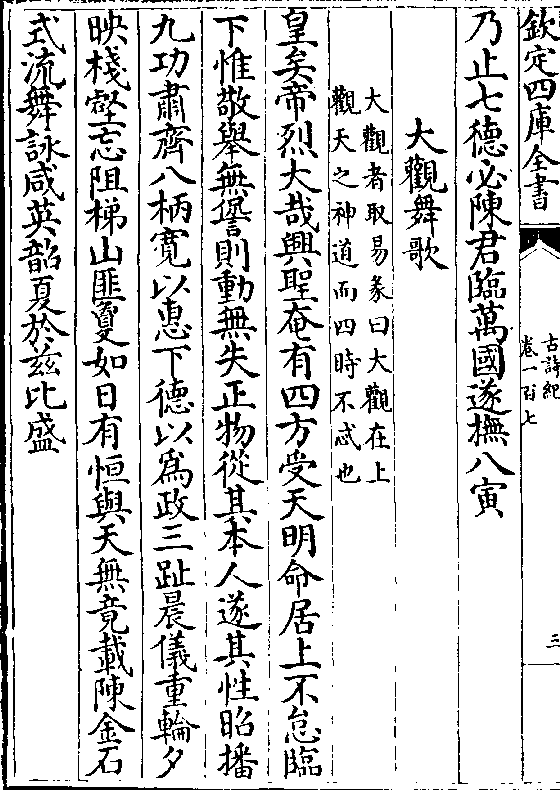 欽定四庫全書
古詩紀
卷一百七
三
乃止七德必陳君臨萬國遂撫八寅
大觀舞歌
大觀者取易彖曰大觀在上
觀天之神道而四時不忒也
皇矣帝烈大哉興聖奄有四方受天明命居上不怠臨
下惟敬舉無諐則動無失正物從其本人遂其性昭播
九功肅齊八柄寛以惠下德以為政三趾晨儀重輪夕
映棧壑忘阻梯山匪敻如日有恒與天無竟載陳金石
式流舞詠咸英韶夏於兹比盛